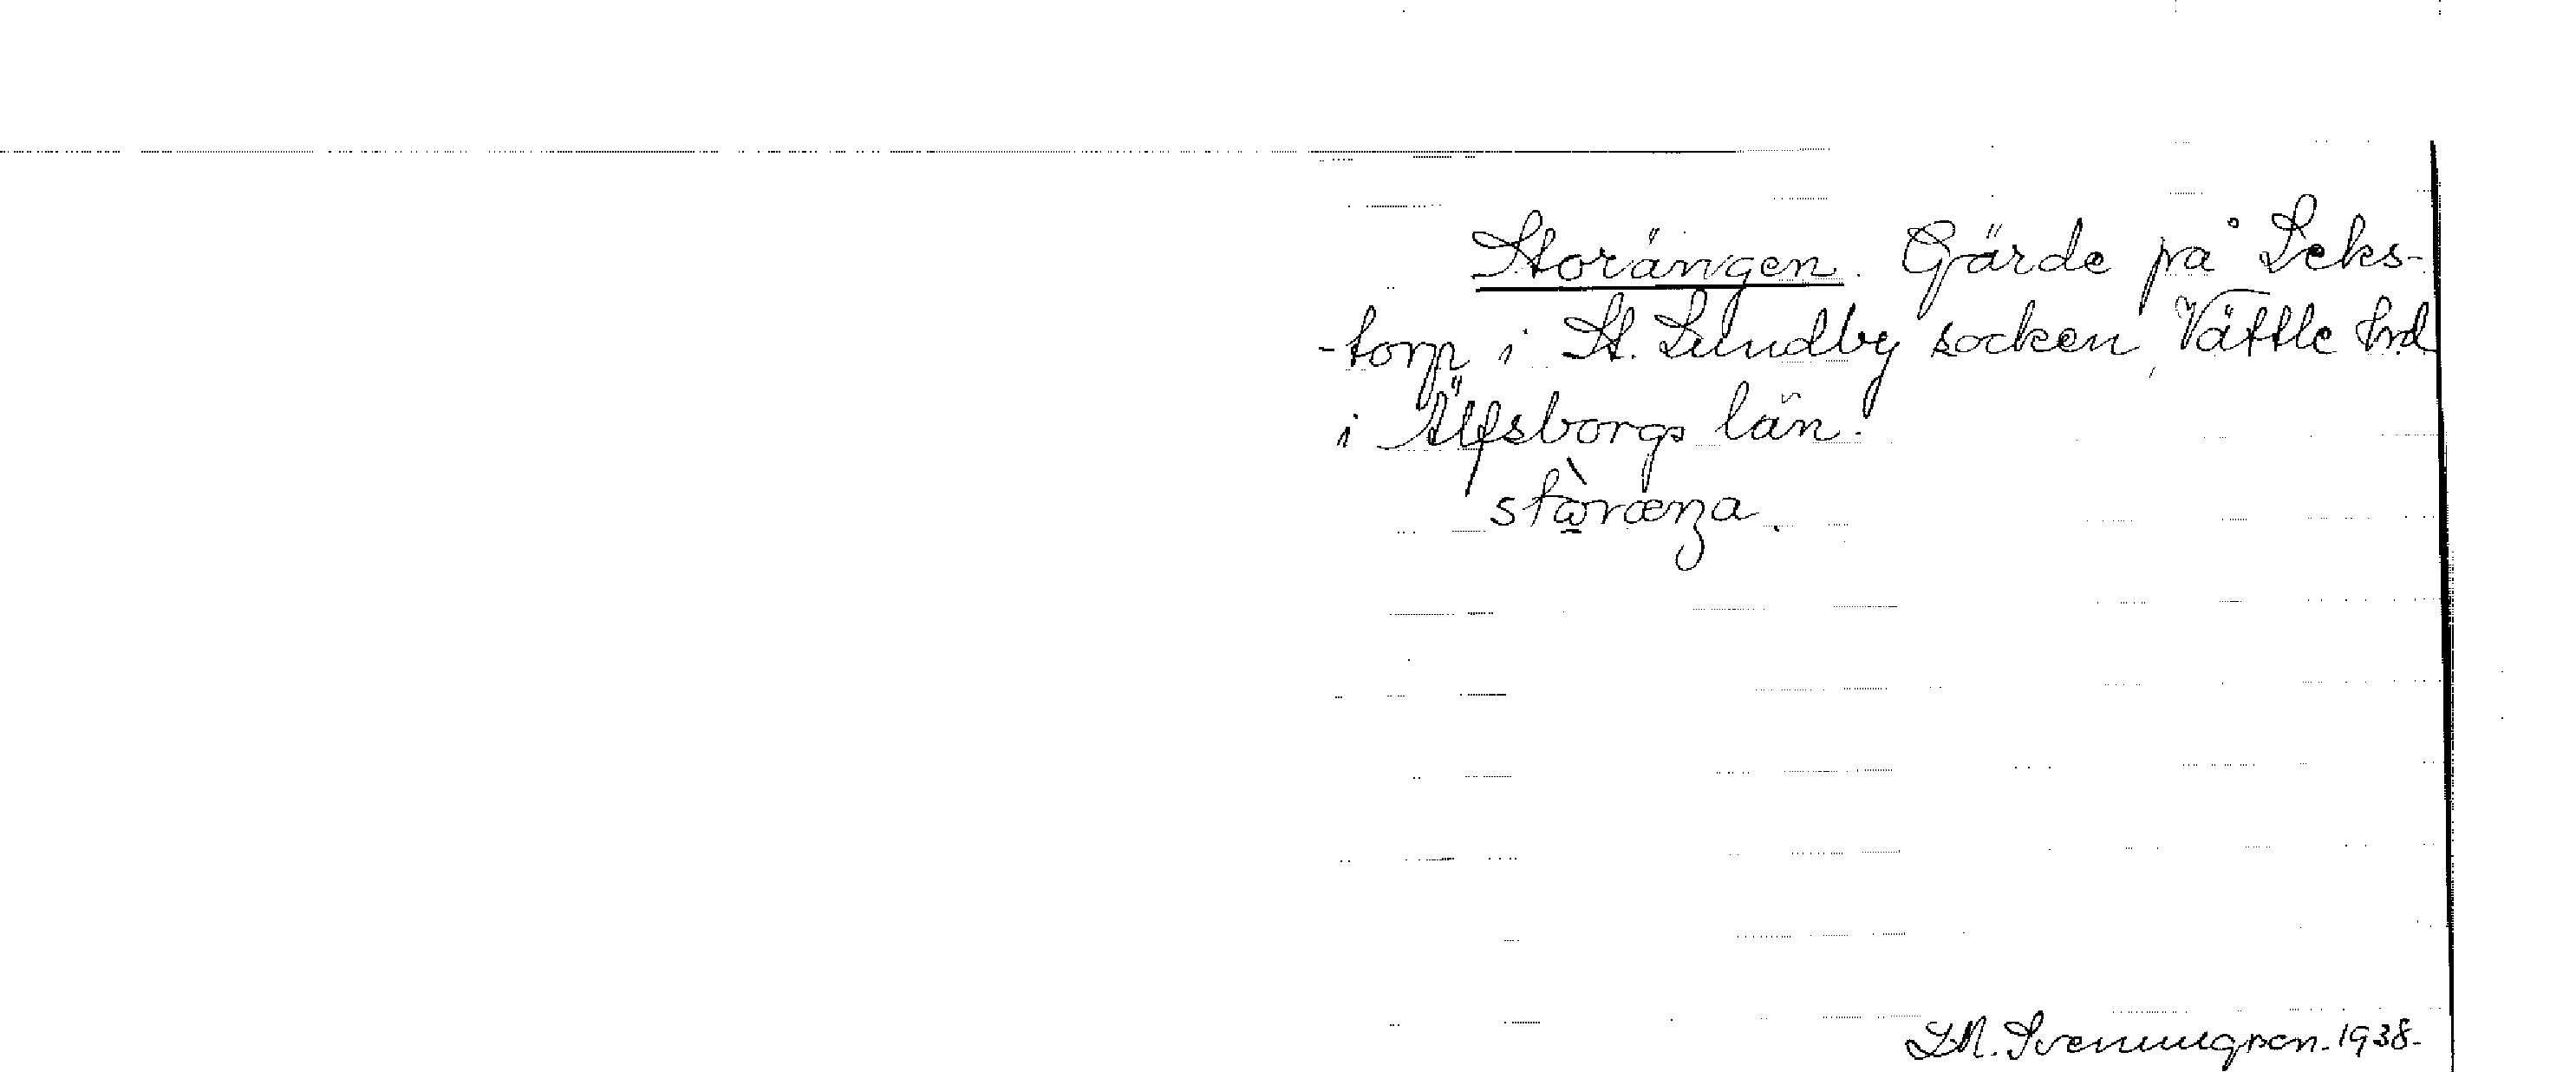 Storängen. Gärde på Leks-
-torp i St. Lundby socken, Vättle hrd
i Älfsborgs län.
stɷ̀ræŋa.
1938-